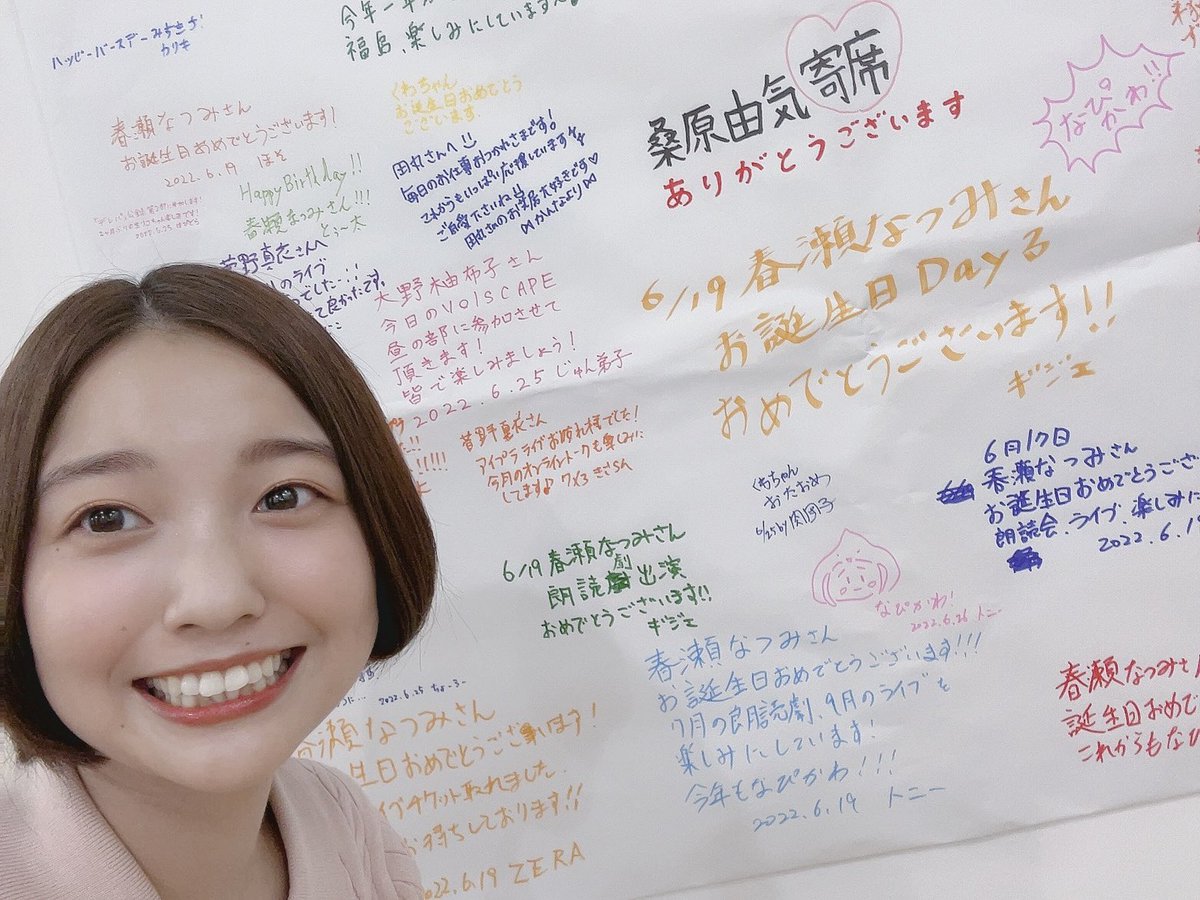 ハッピーバースデーみちきち!
カリキ
今年一年が
福島、楽しみにしています
春瀬なつみさん
お誕生日おめでとうございます!
2022.6.19 ほそ
Happy Birthday!!
春瀬なつみさん!!!
とぅ~太
くわちゃん
お誕生日おめでとう
ございます
田丸さんへ!!
毎日のお仕事おつかれさまです!
これからもいっぱい応援しています
ご自愛くださいね!!
田丸さんのお芝居大好きです♡
かんなより
菅野真衣さんへ
のライブ
でした…!!
て良かったです。
大野柚布子さん
今日のVOISCAPE
昼の部に参加させて
頂きます!
皆で楽しみましょう!
2022.6.25 じゅん弟子
菅野真衣さん
アイプラライブお疲れ様でした!
今月のオンライントークも楽しみに
してます♪
桑原由気寄席
ありがとうございます
なぴかわ!!
6/19 春瀬なつみさん
お誕生日Dayる
おめでとうございます!!
ギジェ
6月17日
春瀬なつみさん
お誕生日おめでとうござ
朗読会、ライブ、楽しみに
2022.6.19
くわちゃん
おたおめ
6/25 by 肉団子
6/19 春瀬なつみさん
朗読劇出演
おめでとうございます!!
ギジェ
なぴかわ!
2022.6.26 トニー
春瀬なつみさん
お誕生日おめでとうございます!!!
7月の朗読劇、9月のライブを
楽しみにしています!
今年もなぴかわ!!!
2022.6.19 トニー
春瀬なつみさん
誕生日おめで
これからもなぴ
2022.6.25 ちょーろー
春瀬なつみさん
生日おめでとうございます!
イブチケット取れました
お待ちしております!!
2022.6.19 ZERA